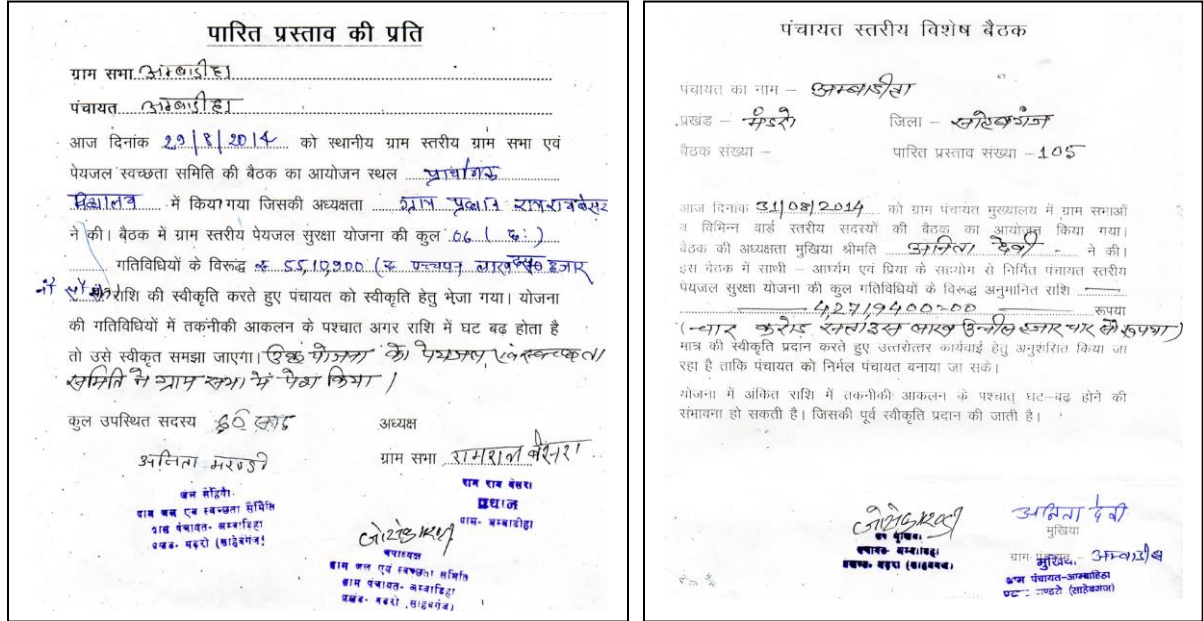 पारित प्रस्ताव की प्रति
ग्राम सभा अम्बाडीहा
पंचायत अम्बाडीहा
आज दिनांक 29/8/2014 को स्थानीय ग्राम स्तरीय ग्राम सभा एवं
पेयजल स्वच्छता समिति की बैठक का आयोजन स्थल प्राथमिक
विद्यालय में किया गया जिसकी अध्यक्षता ग्राम प्रधान रामराय बेसरा
ने की। बैठक में ग्राम स्तरीय पेयजल सुरक्षा योजना की कुल 06 (छः)
गतिविधियों के विरूद्ध रू 55,10,900 (रू पच्चपन लाख दस हजार
नौ सौ राशि की स्वीकृति करते हुए पंचायत को स्वीकृति हेतु भेजा गया। योजना
की गतिविधियों में तकनीकी आकलन के पश्चात अगर राशि में घट बढ़ होता है
तो उसे स्वीकृत समझा जाएगा। उक्त योजना को पेयजल एवं स्वच्छता
समिति ने ग्राम सभा में पेश किया।
कुल उपस्थित सदस्य 60 अध्यक्ष
अनिता मरण्डी ग्राम सभा रामराय बेसरा
जल सहिया
ग्राम जल एवं स्वच्छता समिति
ग्राम पंचायत- अम्बाडिहा
प्रखंड- मंडरो (साहेबगंज)
राम राय बेसरा
प्रधान
ग्राम- अम्बाडीहा
उपाध्यक्ष
ग्राम जल एवं स्वच्छता समिति
ग्राम पंचायत- अम्बाडिहा
प्रखंड- मंडरो (साहेबगंज)
पंचायत स्तरीय विशेष बैठक
पंचायत का नाम – अम्बाडीहा
प्रखंड – मंडरो जिला – साहेबगंज
बैठक संख्या – पारित प्रस्ताव संख्या –105
आज दिनांक 31/08/2014 को ग्राम पंचायत मुख्यालय में ग्राम सभाओं
व विभिन्न वार्ड स्तरीय सदस्यों की बैठक का आयोजन किया गया।
बैठक की अध्यक्षता मुखिया श्रीमति अनिता देवी - ने की।
इस बैठक में साथी – आर्ध्यम एवं प्रिया के सहयोग से निर्मित पंचायत स्तरीय
पेयजल सुरक्षा योजना की कुल गतिविधियों के विरूद्ध अनुमानित राशि
4,27,19400=00 रूपया
(चार करोड़ सताइस लाख उन्नीस हजार चार सौ रूपया)
मात्र की स्वीकृति प्रदान करते हुए उत्तरोत्तर कार्यवाई हेतु अनुशंसित किया जा
रहा है ताकि पंचायत को निर्मल पंचायत बनाया जा सके।
योजना में अंकित राशि में तकनीकी आकलन के पश्चात् घट-बढ होने की
संभावना हो सकती है। जिसकी पूर्व स्वीकृति प्रदान की जाती है।
उप मुखिया
पंचायत- अम्बाडिहा
प्रखण्ड- मंडरो (साहेबगंज)
अनिता देवी
मुखिया
ग्राम पंचायत – अम्बाडीहा
मुखिया
ग्राम पंचायत-आम्बाडिहा
(साहेबगंज)